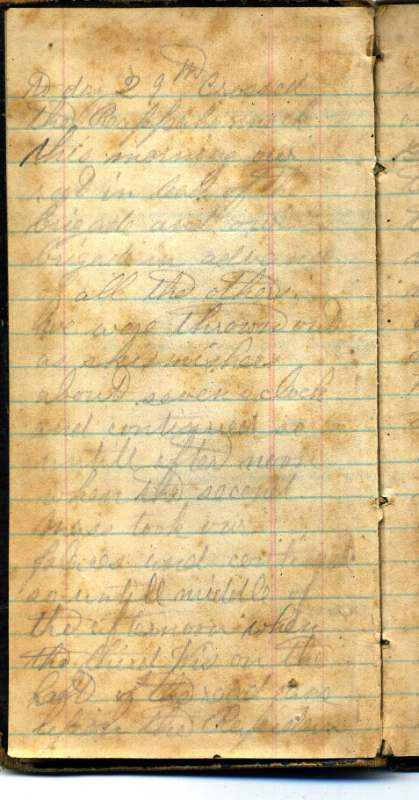 To day 29th Crossed
the Rappahannock
this morning our
in of the
brigade and our
brigade in advance
all the others
we were thrown out
as skirmishers
about seven oclock
and continued so
untill after noon
when the second
took our
places and continued
so untill middle of
the afternoon when
the third Wis on the
of the road
upon the